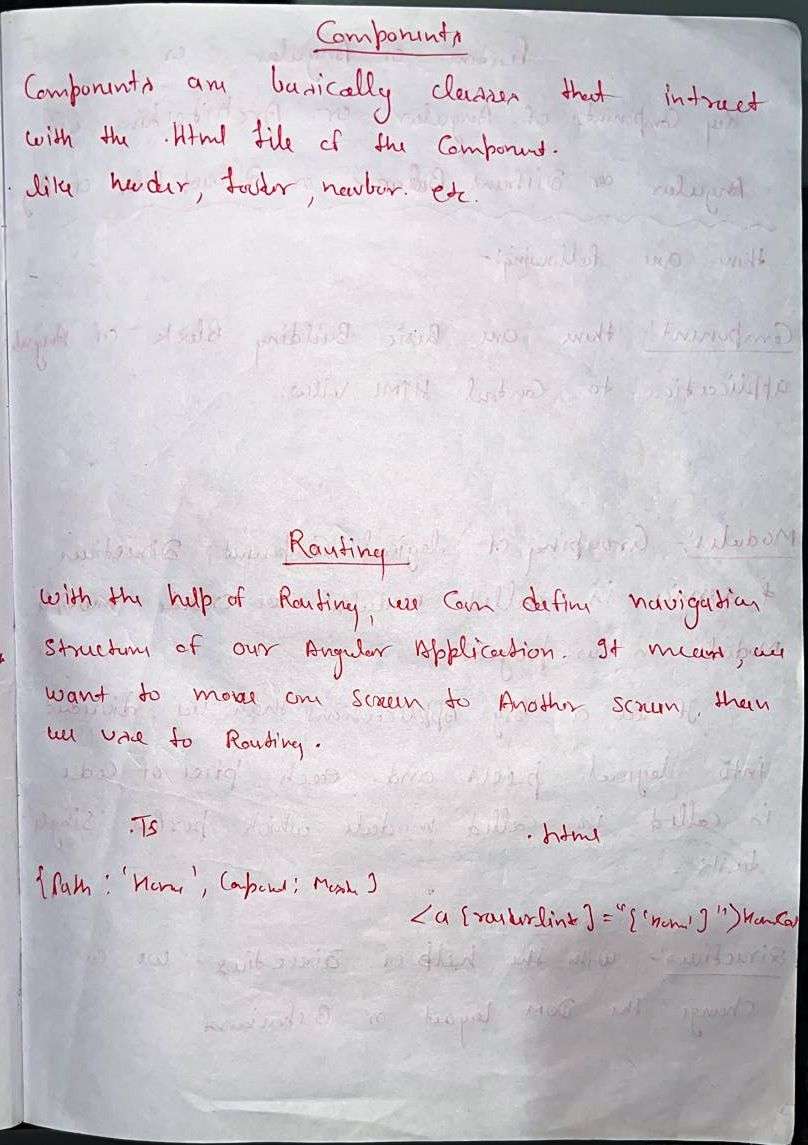 Components
Components are basically classes that intract
with the .Html file of the Component.
like header, footer, navbar. etc.
Routing
with the help of Routing, we can define navigation
structure of our Angular Application. It means, we
want to move one screen to Another screen, then
we use to Routing.
.Ts
.html
{Path : 'Home',
<a [routerlink] = "['home']">